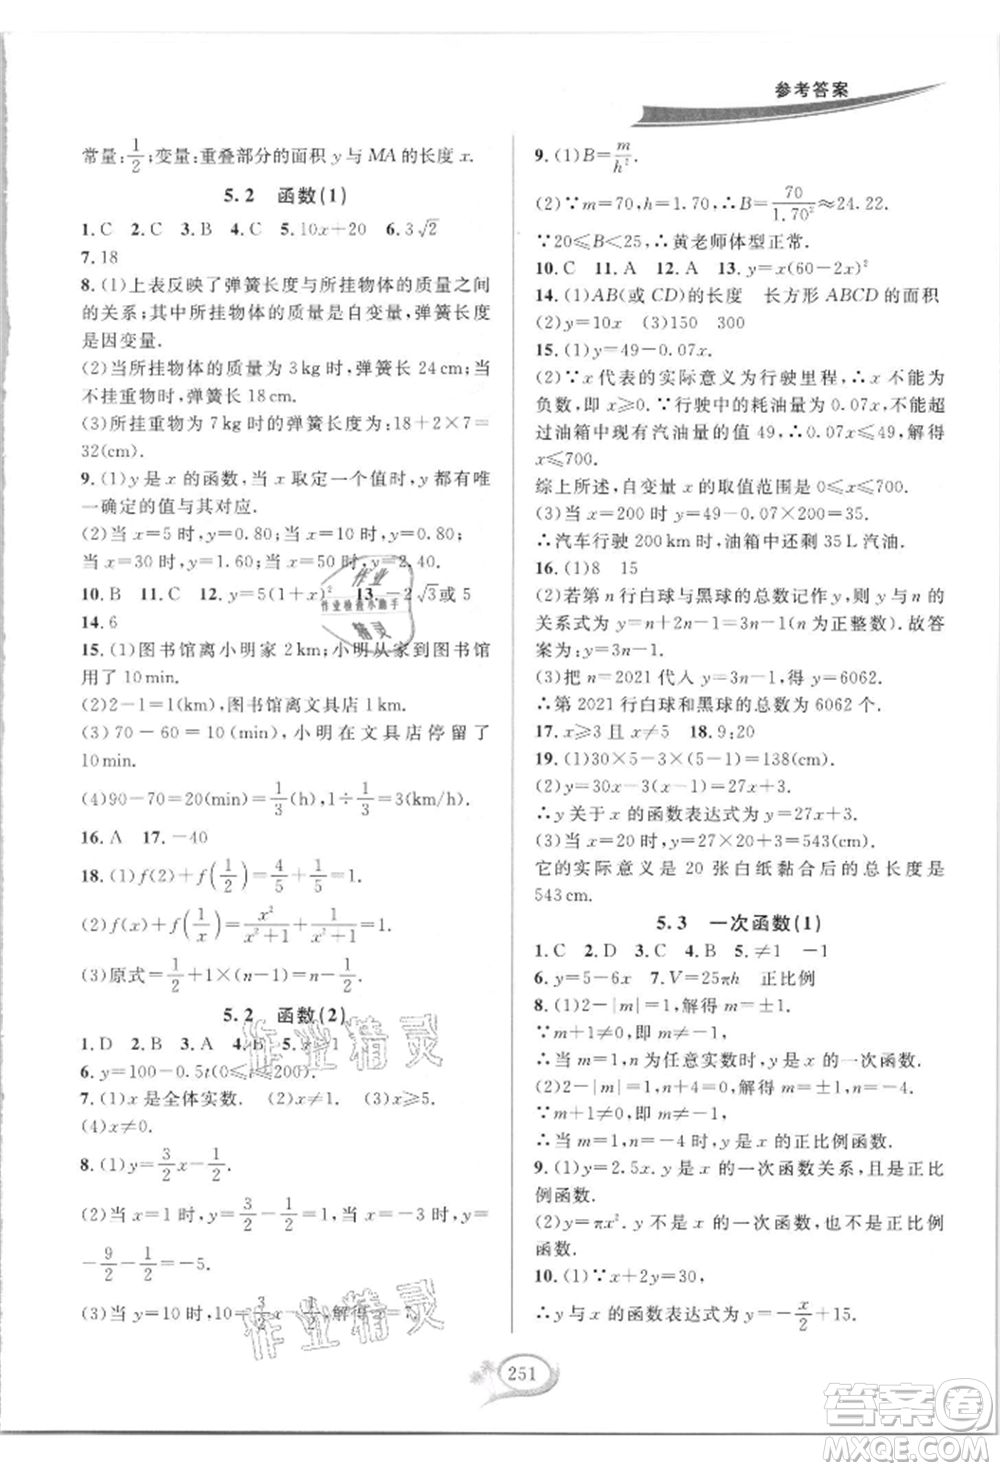 参考答案
常量:1/2;变量:重叠部分的面积 y 与 MA 的长度 x.
5.2 函数(1)
1.C 2.D 3.B 4.C 5.10x+20 6.3√2
7.18
8.(1)上表反映了弹簧长度与所挂物体的质量之间
的关系;其中所挂物体的质量是自变量,弹簧长度
是因变量.
(2)当所挂物体的质量为 3 kg 时,弹簧长 24 cm;当
不挂重物时,弹簧长 18 cm.
(3)所挂重物为 7 kg 时的弹簧长度为:18+2×7=
32(cm).
9.(1)y 是 x 的函数,当 x 取定一个值时,y 都有唯
一确定的值与其对应.
(2)当 x=5 时,y=0.80;当 x=10 时,y=0.80;
当 x=30 时,y=1.60;当 x=50 时,y=2.40.
10.B 11.C 12.y=5(1+x)² 13.-2√3或 5
14.6
15.(1)图书馆离小明家 2 km;小明从家到图书馆
用了 10 min.
(2)2-1=1(km),图书馆离文具店 1 km.
(3)70-60=10(min),小明在文具店停留了
10 min.
(4)90-70=20(min)=1/3(h),1÷1/3=3(km/h).
16.A 17.-40
18.(1)f(2)+f(1/2)=4/5+1/5=1.
(2)f(x)+f(1/x)=x²/(x²+1)+1/(x²+1)=1.
(3)原式=1/2+1×(n-1)=n-1/2.
5.2 函数(2)
1.D 2.B 3.A 4.B 5.x≥1
6.y=100-0.5t(0≤t≤200).
7.(1)x 是全体实数. (2)x≠1. (3)x≥5.
(4)x≠0.
8.(1)y=3/2x-1/2.
(2)当 x=1 时,y=3/2-1/2=1,当 x=-3 时,y=
-9/2-1/2=-5.
(3)当 y=10 时,10=3/2x-1/2,解得 x=7.
9.(1)B=m/h².
(2)∵m=70,h=1.70,∴B=70/1.70²≈24.22.
∵20≤B<25,∴黄老师体型正常.
10.C 11.A 12.A 13.y=x(60-2x)²
14.(1)AB(或 CD)的长度 长方形 ABCD 的面积
(2)y=10x (3)150 300
15.(1)y=49-0.07x.
(2)∵x 代表的实际意义为行驶里程,∴x 不能为
负数,即 x≥0.∵行驶中的耗油量为 0.07x,不能超
过油箱中现有汽油量的值 49,∴0.07x≤49,解得
x≤700.
综上所述,自变量 x 的取值范围是 0≤x≤700.
(3)当 x=200 时 y=49-0.07×200=35.
∴汽车行驶 200 km 时,油箱中还剩 35 L 汽油.
16.(1)8 15
(2)若第 n 行白球与黑球的总数记作 y,则 y 与 n
的关系式为 y=n+2n-1=3n-1(n 为正整数).故答
案为:y=3n-1.
(3)把 n=2021 代人 y=3n-1,得 y=6062.
∴第 2021 行白球和黑球的总数为 6062 个.
17.x≥3 且 x≠5 18.9:20
19.(1)30×5-3×(5-1)=138(cm).
(2)y=30x-3(x-1)=27x+3.
∴y 关于 x 的函数表达式为 y=27x+3.
(3)当 x=20 时,y=27×20+3=543(cm).
它的实际意义是 20 张白纸黏合后的总长度是
543 cm.
5.3 一次函数(1)
1.C 2.D 3.C 4.B 5.≠1 -1
6.y=5-6x 7.V=25πh 正比例
8.(1)2-|m|=1,解得 m=±1.
∵m+1≠0,即 m≠-1,
∴当 m=1,n 为任意实数时,y 是 x 的一次函数.
(2)2-|m|=1,n+4=0,解得 m=±1,n=-4.
∵m+1≠0,即 m≠-1,
∴当 m=1,n=-4 时,y 是 x 的正比例函数.
9.(1)y=2.5x.y 是 x 的一次函数关系,且是正比
例函数.
(2)y=πx².y 不是 x 的一次函数,也不是正比例
函数.
10.(1)∵x+2y=30,
∴y 与 x 的函数表达式为 y=-x/2+15.
251
作业
作业检查小助手
精灵
作业精灵
作业精灵
答案卷
MXQE.COM